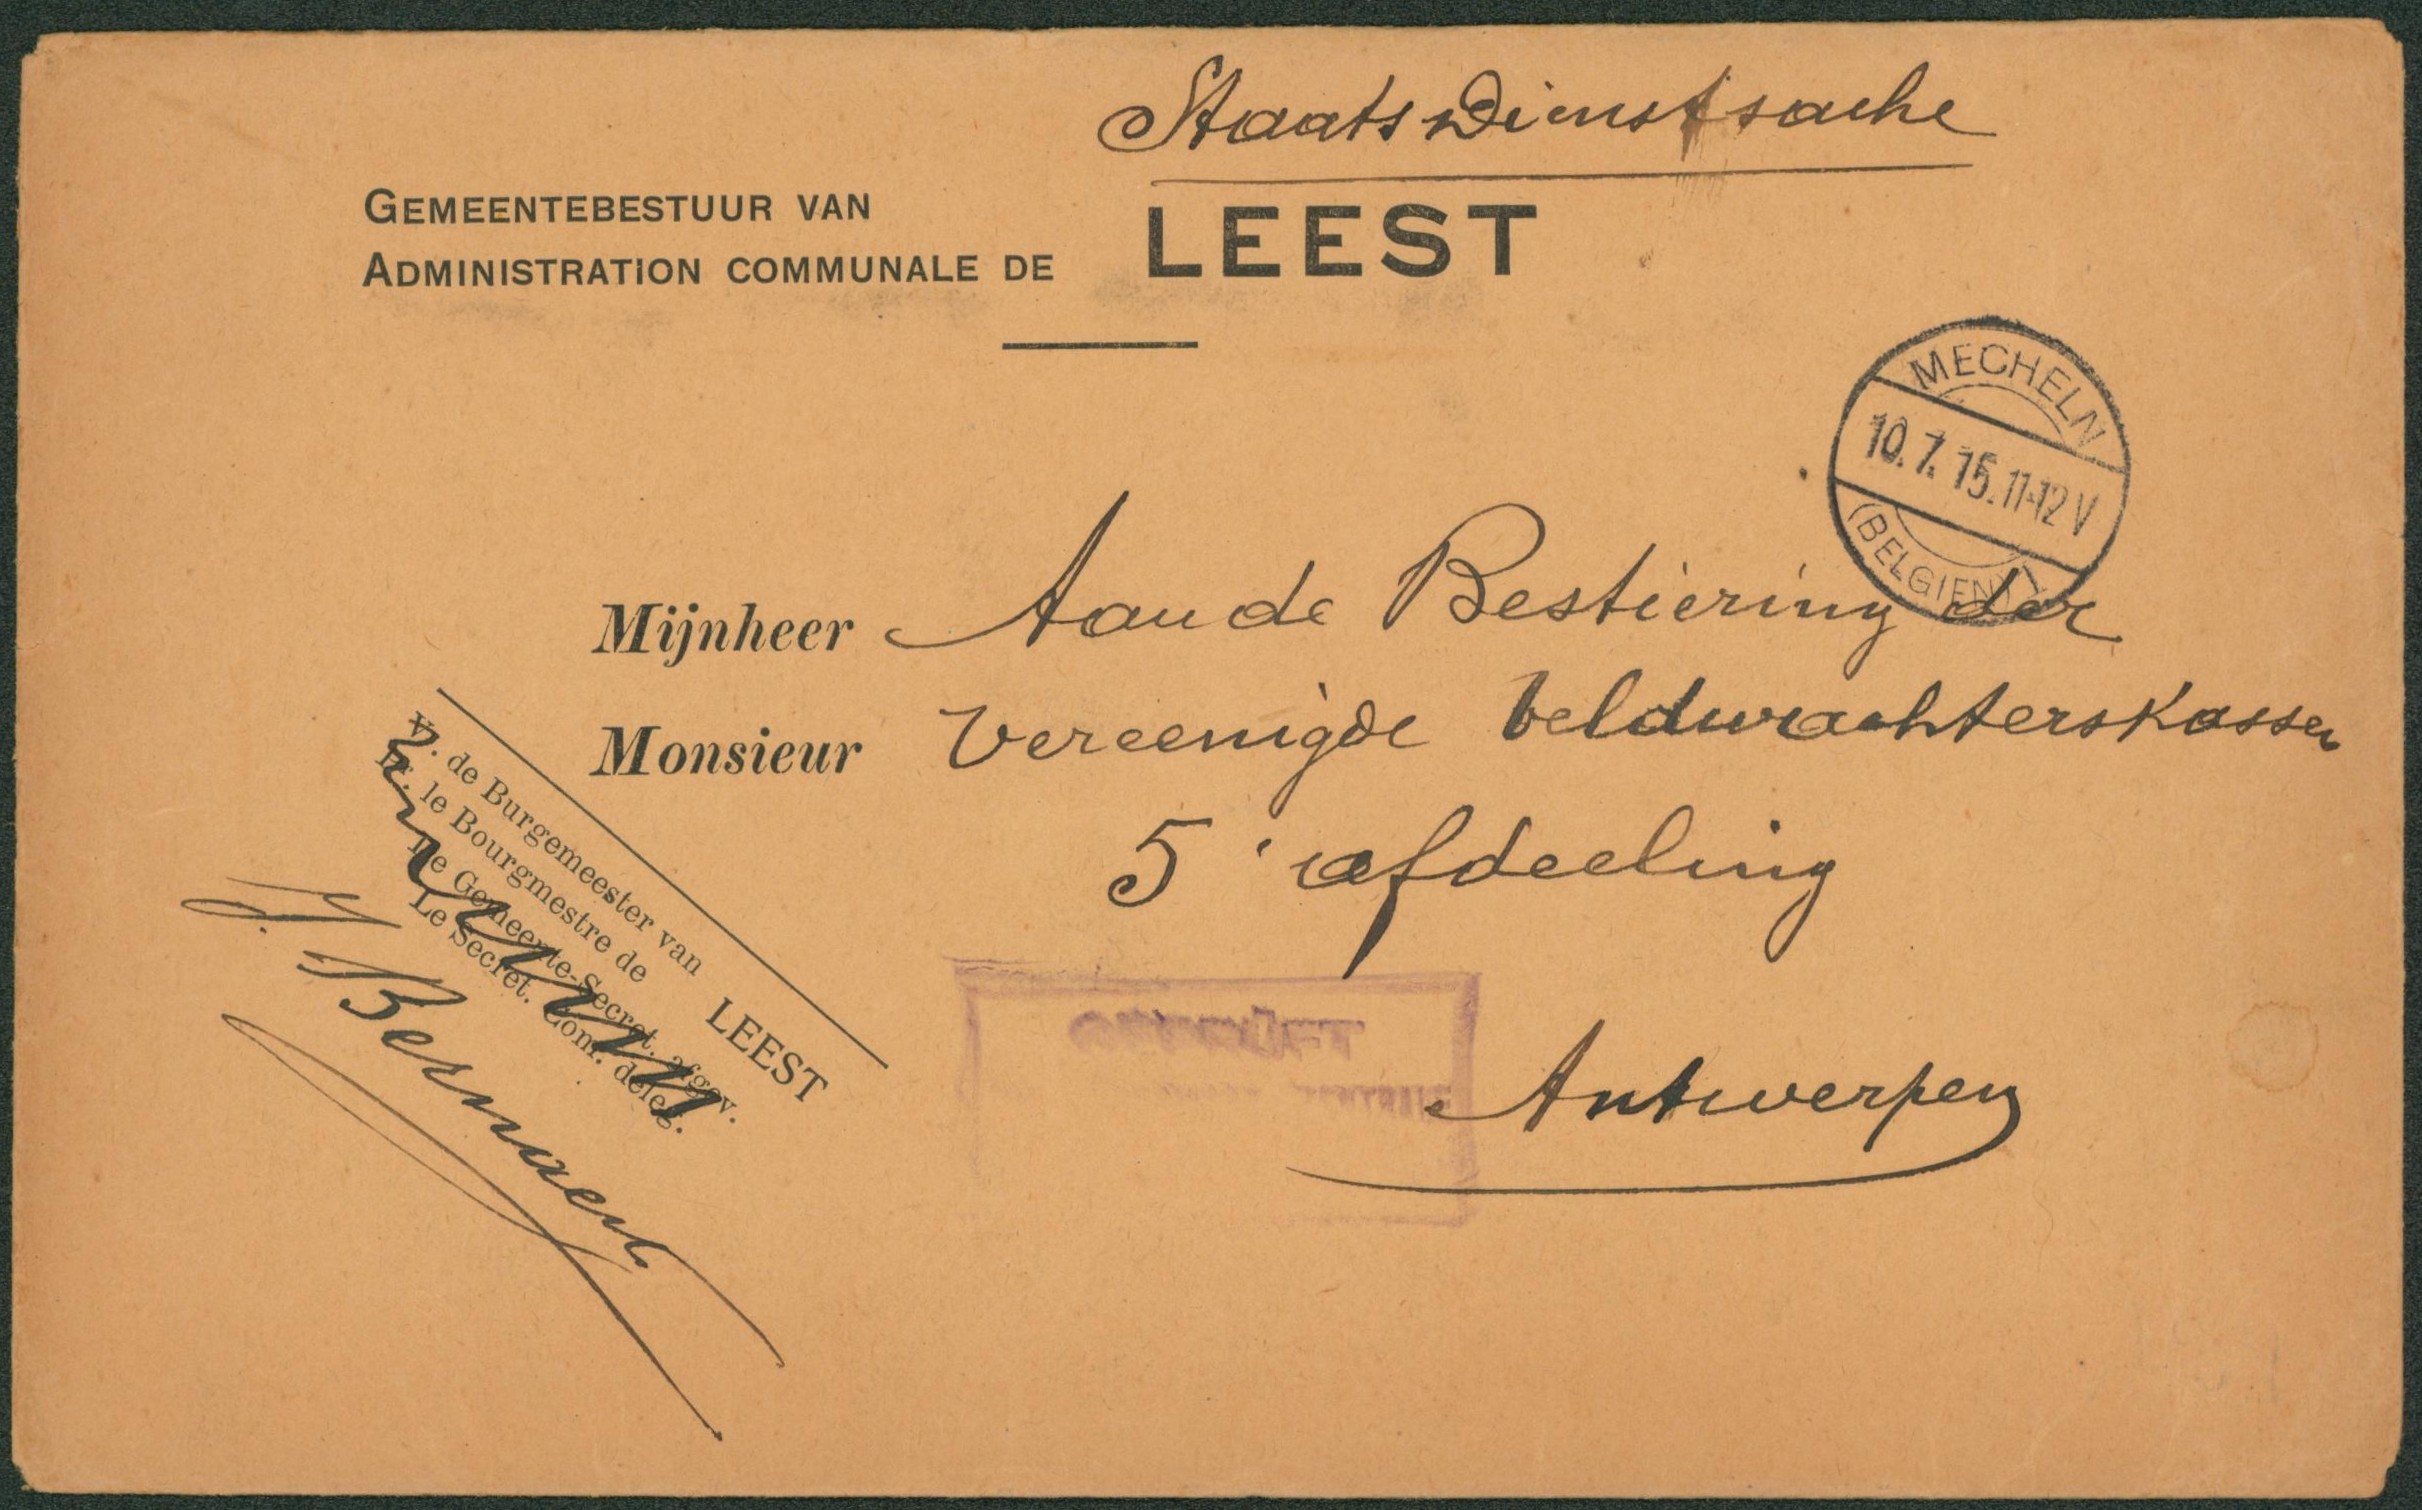 Staats Dienstsache
GEMEENTEBESTUUR VAN
ADMINISTRATION COMMUNALE DE LEEST
MECHELN
10.7.15.11-12 V
(BELGIEN)
Mijnheer Aan de Bestiering der
Monsieur Vereenigde Veldwachterskassen
5e afdeeling
Antwerpen
V. de Burgemeester van
Pr. le Bourgmestre de
LEEST
De Gemeente-Secret. afgev.
Le Secret. Com. déleg.
J. Bernaerts